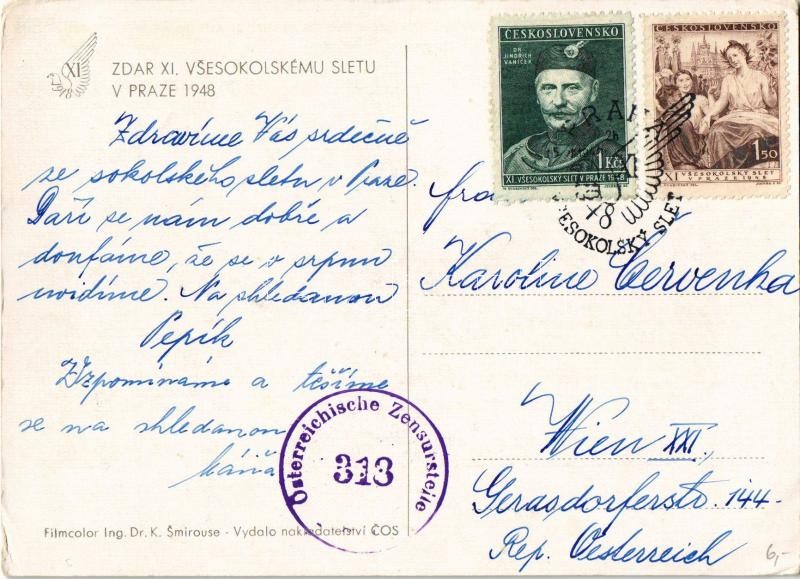 XI
ZDAR XI. VŠESOKOLSKÉMU SLETU
V PRAZE 1948
Zdravíme Vás srdečně
ze sokolského sletu v Praze.
Daří se nám dobře a
doufáme, že se v srpnu
uvidíme. Na shledanou
Pepík
Vzpomínáme a těšíme
se na shledanou
Máňa
Filmcolor Ing. Dr. K. Šmirouse - Vydalo nakladatelství ČOS
Österreichische Zensurstelle
313
ČESKOSLOVENSKO
DR
JINDŘICH
VANÍČEK
1 Kčs
XI. VŠESOKOLSKÝ SLET V PRAZE 1948
ČESKOSLOVENSKO
1.50
VŠESOKOLSKÝ SLET
V PRAZE 1948
VŠESOKOLSKÝ SLET
48
Karoline Červenka
Wien XXI,
Gerasdorferstr 144-
Rep. Oesterreich
6,-